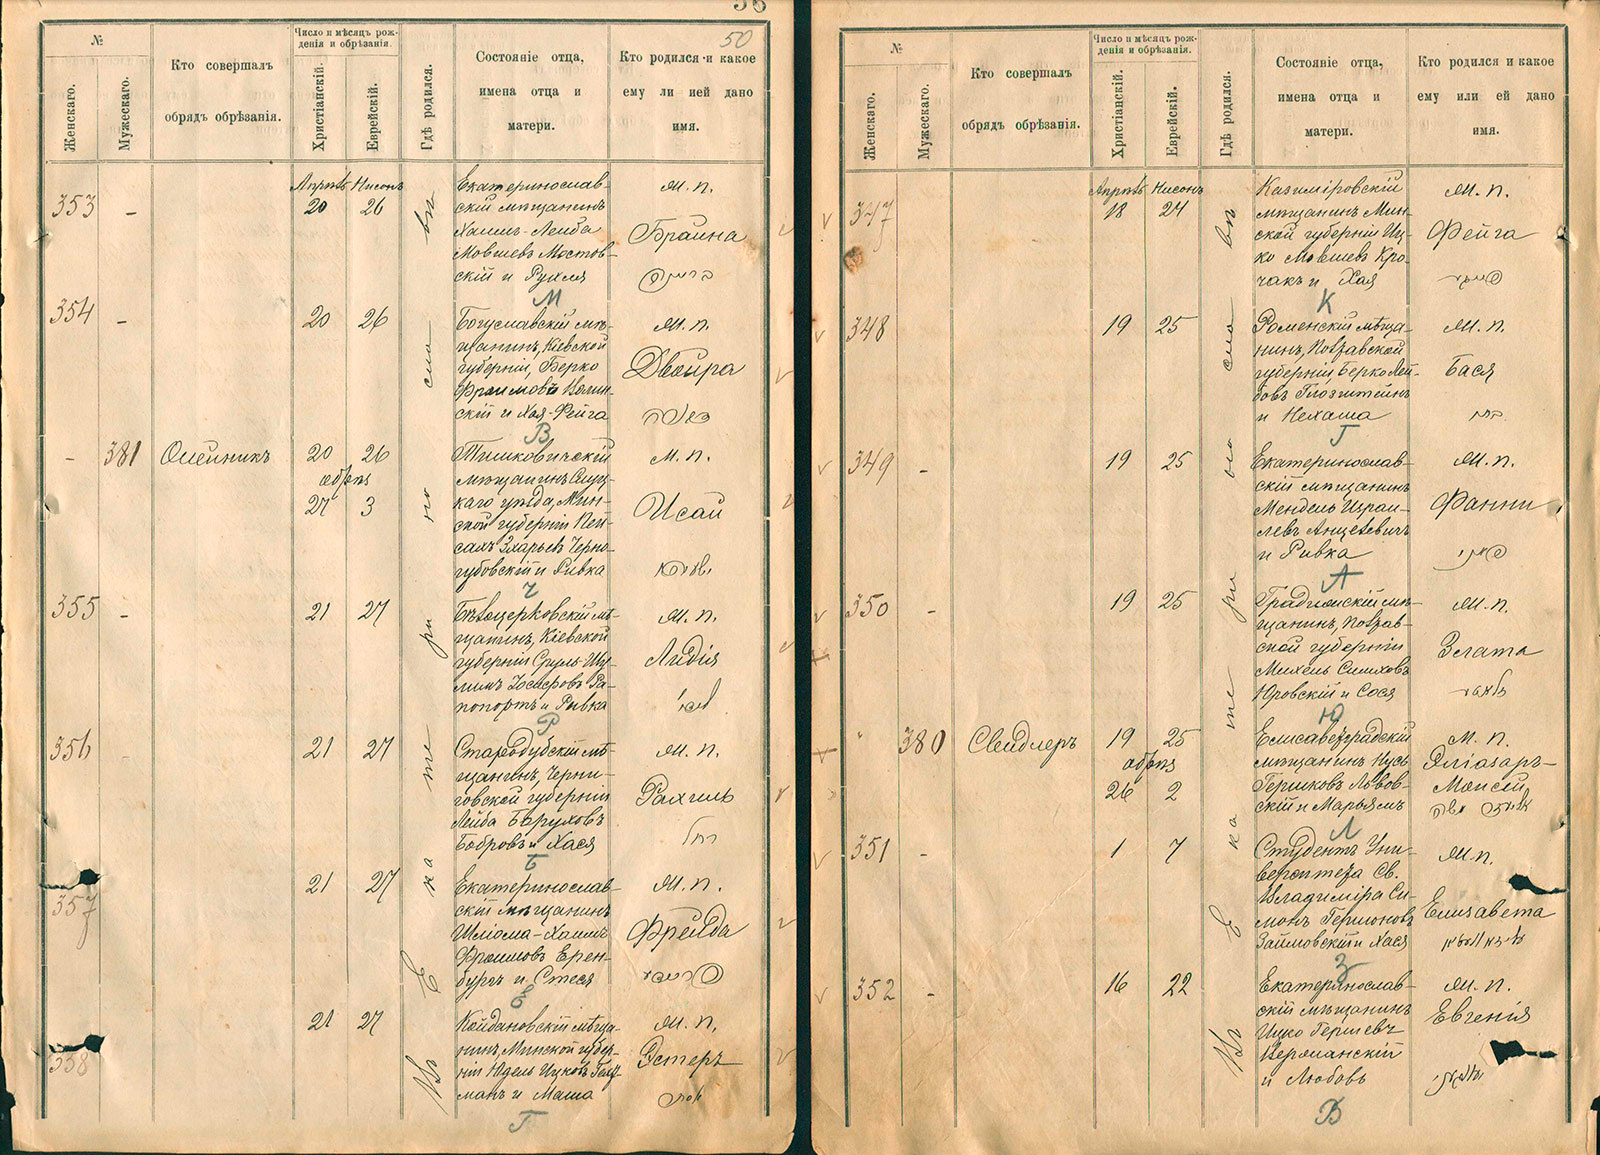 50
№
Женскаго.
Мужескаго.
Кто совершалъ
обрядъ обрѣзанія.
Число и мѣсяцъ рож-
денія и обрѣзанія.
Христіанскій.
Еврейскій.
Гдѣ родился.
Состояніе отца,
имена отца и
матери.
Кто родился и какое
ему ли ией дано
имя.
Въ Екатеринославѣ
353
–
Апрѣль Нисонъ
20 26
Екатеринослав-
скій мѣщанинъ
Хаимъ-Лейба
Мовшевъ Мостов-
скій и Рухля
М
м. п.
Браина
בריינה
354
–
20 26
Богуславскій мѣ-
щанинъ, Кіевской
губерніи, Берко
скій и Хая-Фейга
В
м. п.
Двойра
– 381
Олейникъ
20 26
обрѣз
27 3
Тимковичскій
мѣщанинъ Слуц-
каго уѣзда, Мин-
ской губерніи Пей-
сахъ Черно-
губовскій и Ривка
Ч
м. п.
Исай
355
–
21 27
Бѣлоцерковскій мѣ-
щанинъ, Кіевской
губерніи Сруль-Шу-
лимъ Іосифовъ Ра-
попортъ и Ривка
Р
м. п.
Лидія
356
21 27
Стародубскій мѣ-
щанинъ, Черни-
говской губерніи
Лейба Боруховъ
Бобровъ и Хася
Б
м. п.
Рахиль
רחל
357
21 27
Екатеринослав-
скій мѣщанинъ
Шліома-Хаимъ
Фроимовъ Ерен-
бургъ и Стеся
м. п.
Фрейда
358
21 27
Койдановскій мѣща-
нинъ, Минской губер-
ніи Юдель Ицковъ Гель-
манъ и Маша
Г
м. п.
Эстеръ
№
Женскаго.
Мужескаго.
Кто совершалъ
обрядъ обрѣзанія.
Число и мѣсяцъ рож-
денія и обрѣзанія.
Христіанскій.
Еврейскій.
Гдѣ родился.
Состояніе отца,
имена отца и
матери.
Кто родился и какое
ему или ей дано
имя.
Въ Екатеринославѣ
347
Апрѣль Нисонъ
18 24
Казиміровскій
мѣщанинъ Мин-
ской губерніи Иц-
ко Мовшевъ Кро-
чакъ и Хая
К
м. п.
Фейга
348
19 25
Роменскій мѣща-
нинъ, Полтавской
губерніи Берко Лей-
бовъ
и Нехама
Г
м. п.
Бася
349
–
19 25
Екатеринослав-
скій мѣщанинъ
Мендель Израи-
левъ Анцелевичъ
и Ривка
А
м. п.
Фанни
350
–
19 25
Градижскій мѣ-
щанинъ, Полтав-
ской губерніи
Михель
Юровскій и Сося
Ю
м. п.
Злата
380
Свейдлеръ
19 25
обрѣз
26 2
Елисаветградскій
мѣщанинъ Нусь
Гершковъ Львов-
скій и Марьямъ
Л
м. п.
Эліазаръ-
Моисей
351
–
1 7
Студентъ Уни-
верситета Св.
Владиміра Си-
монъ Гершоновъ
Займовскій и Хася
З
м. п.
Елизавета
352
–
16 22
Екатеринослав-
скій мѣщанинъ
Ицко Гершевъ
и Любовь
В
м. п.
Евгенія